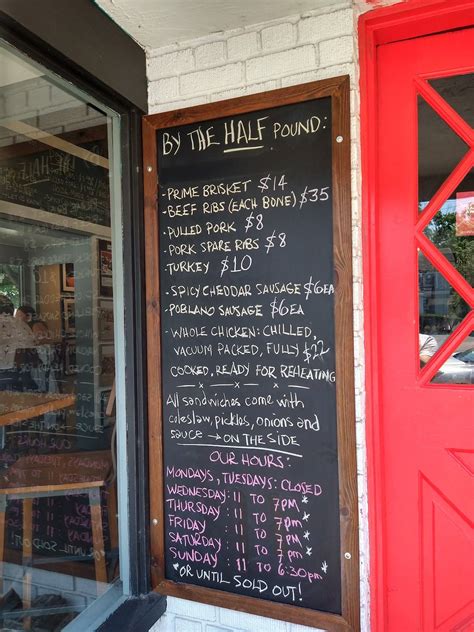 BY THE HALF POUND:
- PRIME BRISKET $14
- BEEF RIBS (EACH BONE) $35
- PULLED PORK $8
- PORK SPARE RIBS $8
- TURKEY $10
- SPICY CHEDDAR SAUSAGE $6EA
- POBLANO SAUSAGE $6EA
- WHOLE CHICKEN: CHILLED,
VACUUM PACKED, FULLY $22
COOKED, READY FOR REHEATING
All sandwiches come with
coleslaw, pickles, onions and
sauce → ON THE SIDE
OUR HOURS:
MONDAYS, TUESDAYS: CLOSED
WEDNESDAY: 11 TO 7PM*
THURSDAY : 11 TO 7PM*
FRIDAY : 11 TO 7PM*
SATURDAY : 11 TO 7PM*
SUNDAY : 11 TO 6:30PM*
*OR UNTIL SOLD OUT!